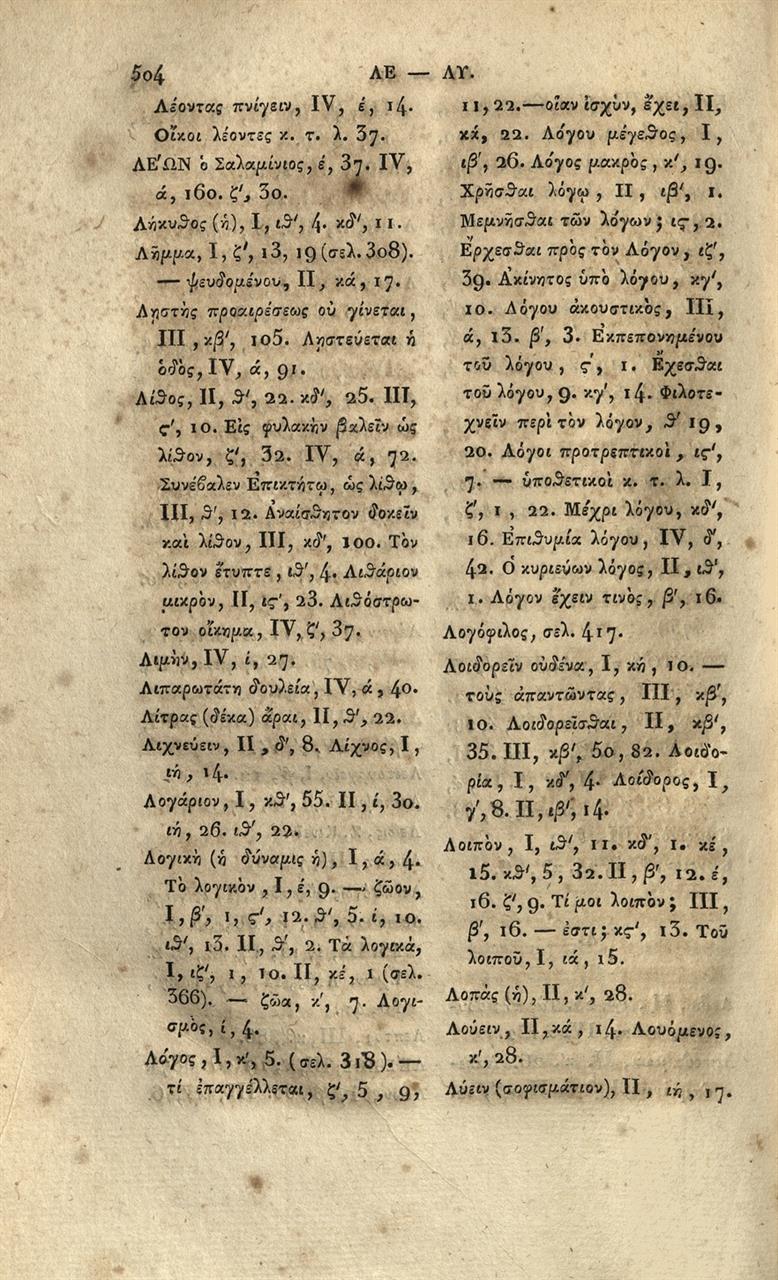 504
ΛΕ — ΛΥ.
Λέοντας πνίγειν, IV, έ, 14.
Οἶκοι λέοντες κ. τ. λ. 37.
ΛΕΏΝ ὁ Σαλαμίνιος, έ, 37. IV,
ά, 160. ζ', 30.
Λήκυθος (ἡ), I, ιθ', 4. κδ', 11.
Λῆμμα, I, ζ', 13, 19 (σελ. 308).
— ψευδομένου, II, κά, 17.
Λῃστὴς προαιρέσεως οὐ γίνεται,
III, κβ', 105. Λῃστεύεται ἡ
ὁδὸς, IV, ά, 91.
Λίθος, II, θ', 22. κδ', 25. III,
ς', 10. Εἰς φυλακὴν βαλεῖν ὡς
λίθον, ζ', 32. IV, ά, 72.
Συνέβαλεν Ἐπικτήτῳ, ὡς λίθῳ,
III, θ', 12. Ἀναίσθητον δοκεῖν
καὶ λίθον, III, κδ', 100. Τὸν
λίθον ἔτυπτε, ιθ', 4. Λιθάριον
μικρὸν, II, ις', 23. Λιθόστρω-
τον οἴκημα, IV, ζ', 37.
Λιμὴν, IV, ί, 27.
Λιπαρωτάτη δουλεία, IV, ά, 40.
Λίτρας (δέκα) ἆραι, II, θ', 22.
Λιχνεύειν, II, δ', 8. Λίχνος, I,
ιή, 14.
Λογάριον, I, κθ', 55. II, ί, 30.
ιή, 26. ιθ', 22.
Λογικὴ (ἡ δύναμις ἡ), I, ά, 4.
Τὸ λογικὸν, I, έ, 9. — ζῶον,
I, β', 1, ς', 12. θ', 5. ί, 10.
ιθ', 13. II, θ', 2. Τὰ λογικά,
I, ιζ', 1, 10. II, κέ, 1 (σελ.
366). — ζῶα, κ', 7. Λογι-
σμὸς, ί, 4.
Λόγος, I, κ', 5. (σελ. 318). —
τί ἐπαγγέλλεται, ζ', 5, 9,
11, 22. — οἵαν ἰσχὺν, ἔχει, II,
κά, 22. Λόγου μέγεθος, I,
ιβ', 26. Λόγος μακρὸς, κ', 19.
Χρῆσθαι λόγῳ, II, ιβ', 1.
Μεμνῆσθαι τῶν λόγων; ις, 2.
Ἔρχεσθαι πρὸς τὸν Λόγον, ιζ',
39. Ἀκίνητος ὑπὸ λόγου, κγ',
10. Λόγου ἀκουστικὸς, III,
ά, 13. β', 3. Ἐκπεπονημένου
τοῦ λόγου, ς', 1. Ἔχεσθαι
τοῦ λόγου, 9. κγ', 14. Φιλοτε-
χνεῖν περὶ τὸν λόγον, θ' 19,
20. Λόγοι προτρεπτικοὶ, ις',
7. — ὑποθετικοὶ κ. τ. λ. I,
ζ', 1, 22. Μέχρι λόγου, κδ',
16. Ἐπιθυμία λόγου, IV, δ',
42. Ὁ κυριεύων λόγος, II, ιθ',
1. Λόγον ἔχειν τινὸς, β', 16.
Λογόφιλος, σελ. 417.
Λοιδορεῖν οὐδένα, I, κή, 10. —
τοὺς ἀπαντῶντας, III, κβ',
10. Λοιδορεῖσθαι, II, κβ',
35. III, κβ', 50, 82. Λοιδο-
ρία, I, κδ', 4. Λοίδορος, I,
γ', 8. II, ιβ', 14.
Λοιπὸν, I, ιθ', 11. κδ', 1. κέ,
15. κθ', 5, 32. II, β', 12. έ,
16. ζ', 9. Τί μοι λοιπὸν; III,
β', 16. — ἐστι; κς', 13. Τοῦ
λοιποῦ, I, ιά, 15.
Λοπὰς (ἡ), II, κ', 28.
Λούειν, II, κά, 14. Λουόμενος,
κ', 28.
Λύειν (σοφισμάτιον), II, ιή, 17.